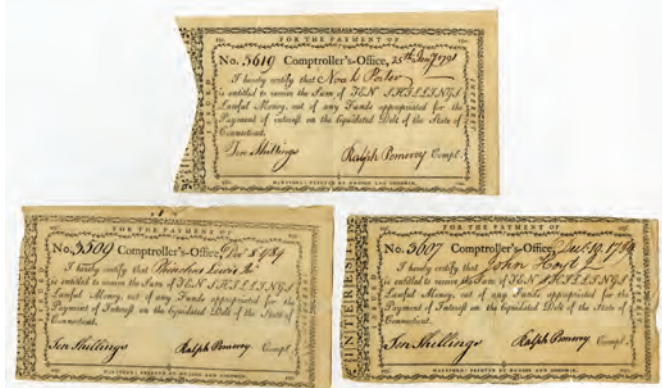 FOR THE PAYMENT OF
No. 5619 Comptroller's-Office, 25th Jany 1791
I hereby certify that Noah Porter
is entitled to receive the Sum of TEN SHILLINGS
Lawful Money, out of any Funds appropriated for the
Payment of interest on the liquidated Debt of the State of
Connecticut.
Ten Shillings Ralph Pomeroy Compt.
HARTFORD: PRINTED BY HUDSON AND GOODWIN.
INTEREST
FOR THE PAYMENT OF
No. 5509 Comptroller's-Office, Decr 8 1789
I hereby certify that Phinehas Lewis
is entitled to receive the Sum of TEN SHILLINGS
Lawful Money, out of any Funds appropriated for the
Payment of Interest on the liquidated Debt of the State of
Connecticut.
Ten Shillings Ralph Pomeroy Compt.
HARTFORD: PRINTED BY HUDSON AND GOODWIN.
INTEREST
FOR THE PAYMENT OF
No. 5607 Comptroller's-Office, Dec. 19. 1789
I hereby certify that John Hoyt
is entitled to receive the Sum of TEN SHILLINGS
Lawful Money, out of any Funds appropriated for the
Payment of Interest on the liquidated Debt of the State of
Connecticut.
Ten Shillings Ralph Pomeroy Compt.
HARTFORD: PRINTED BY HUDSON AND GOODWIN.